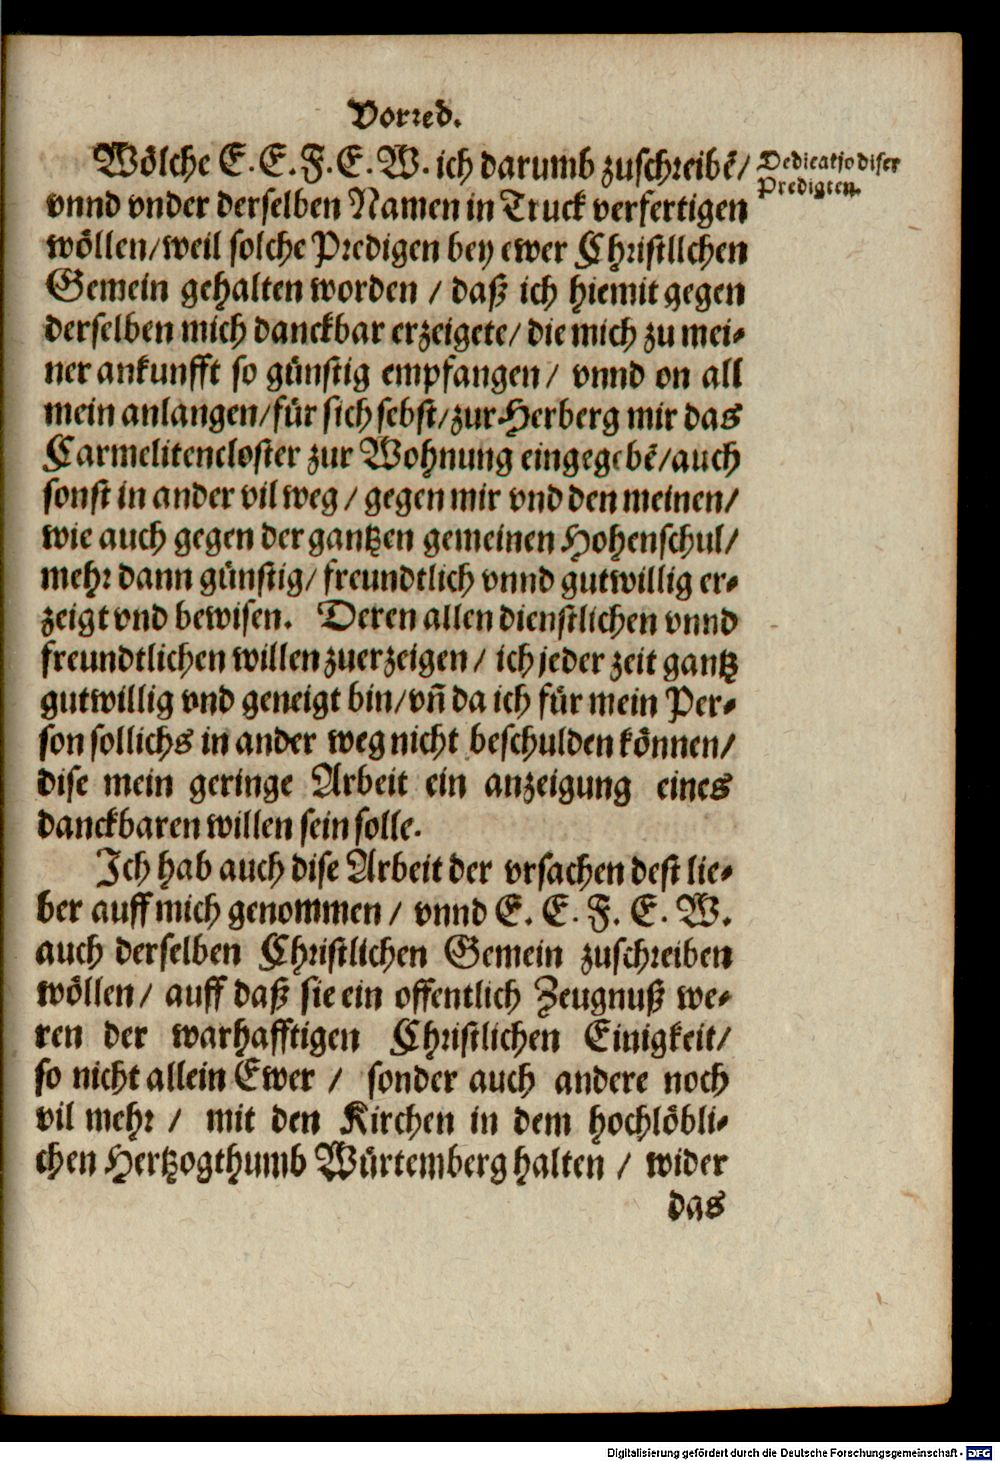 Vorred.
Wölche E. E. F. E. W. ich darumb zuschreibẽ/
vnnd vnder derselben Namen in Truck verfertigen
wöllen/weil solche Predigen bey ewer Christlichen
Gemein gehalten worden / daß ich hiemit gegen
derselben mich danckbar erzeigete/ die mich zu mei-
ner ankunfft so günstig empfangen/ vnnd on all
mein anlangen/für sich sebst/zur Herberg mir das
Carmeliteneloster zur Wohnung eingegebẽ/auch
sonst in ander vil weg / gegen mir vnd den meinen/
wie auch gegen der gantzen gemeinen Hohenschul/
mehr dann günstig/ freundtlich vnnd gutwillig er-
zeigt vnd bewisen. Deren allen dienstlichen vnnd
freundtlichen willen zuerzeigen/ ich jeder zeit gantz
gutwillig vnd geneigt bin/vñ da ich für mein Per-
son sollichs in ander weg nicht beschulden können/
dise mein geringe Arbeit ein anzeigung eines
danckbaren willen sein solle.
Ich hab auch dise Arbeit der vrsachen dest lie-
ber auff mich genommen/ vnnd E. E. F. E. W.
auch derselben Christlichen Gemein zuschreiben
wöllen/ auff daß sie ein offentlich Zeugnuß we-
ren der warhafftigen Christlichen Einigkeit/
so nicht allein Ewer / sonder auch andere noch
vil mehr / mit den Kirchen in dem hochlöbli-
chen Hertzogthumb Würtemberg halten / wider
das
Dedicatio diser
Predigten.
Digitalisierung gefördert durch die Deutsche Forschungsgemeinschaft - DFG